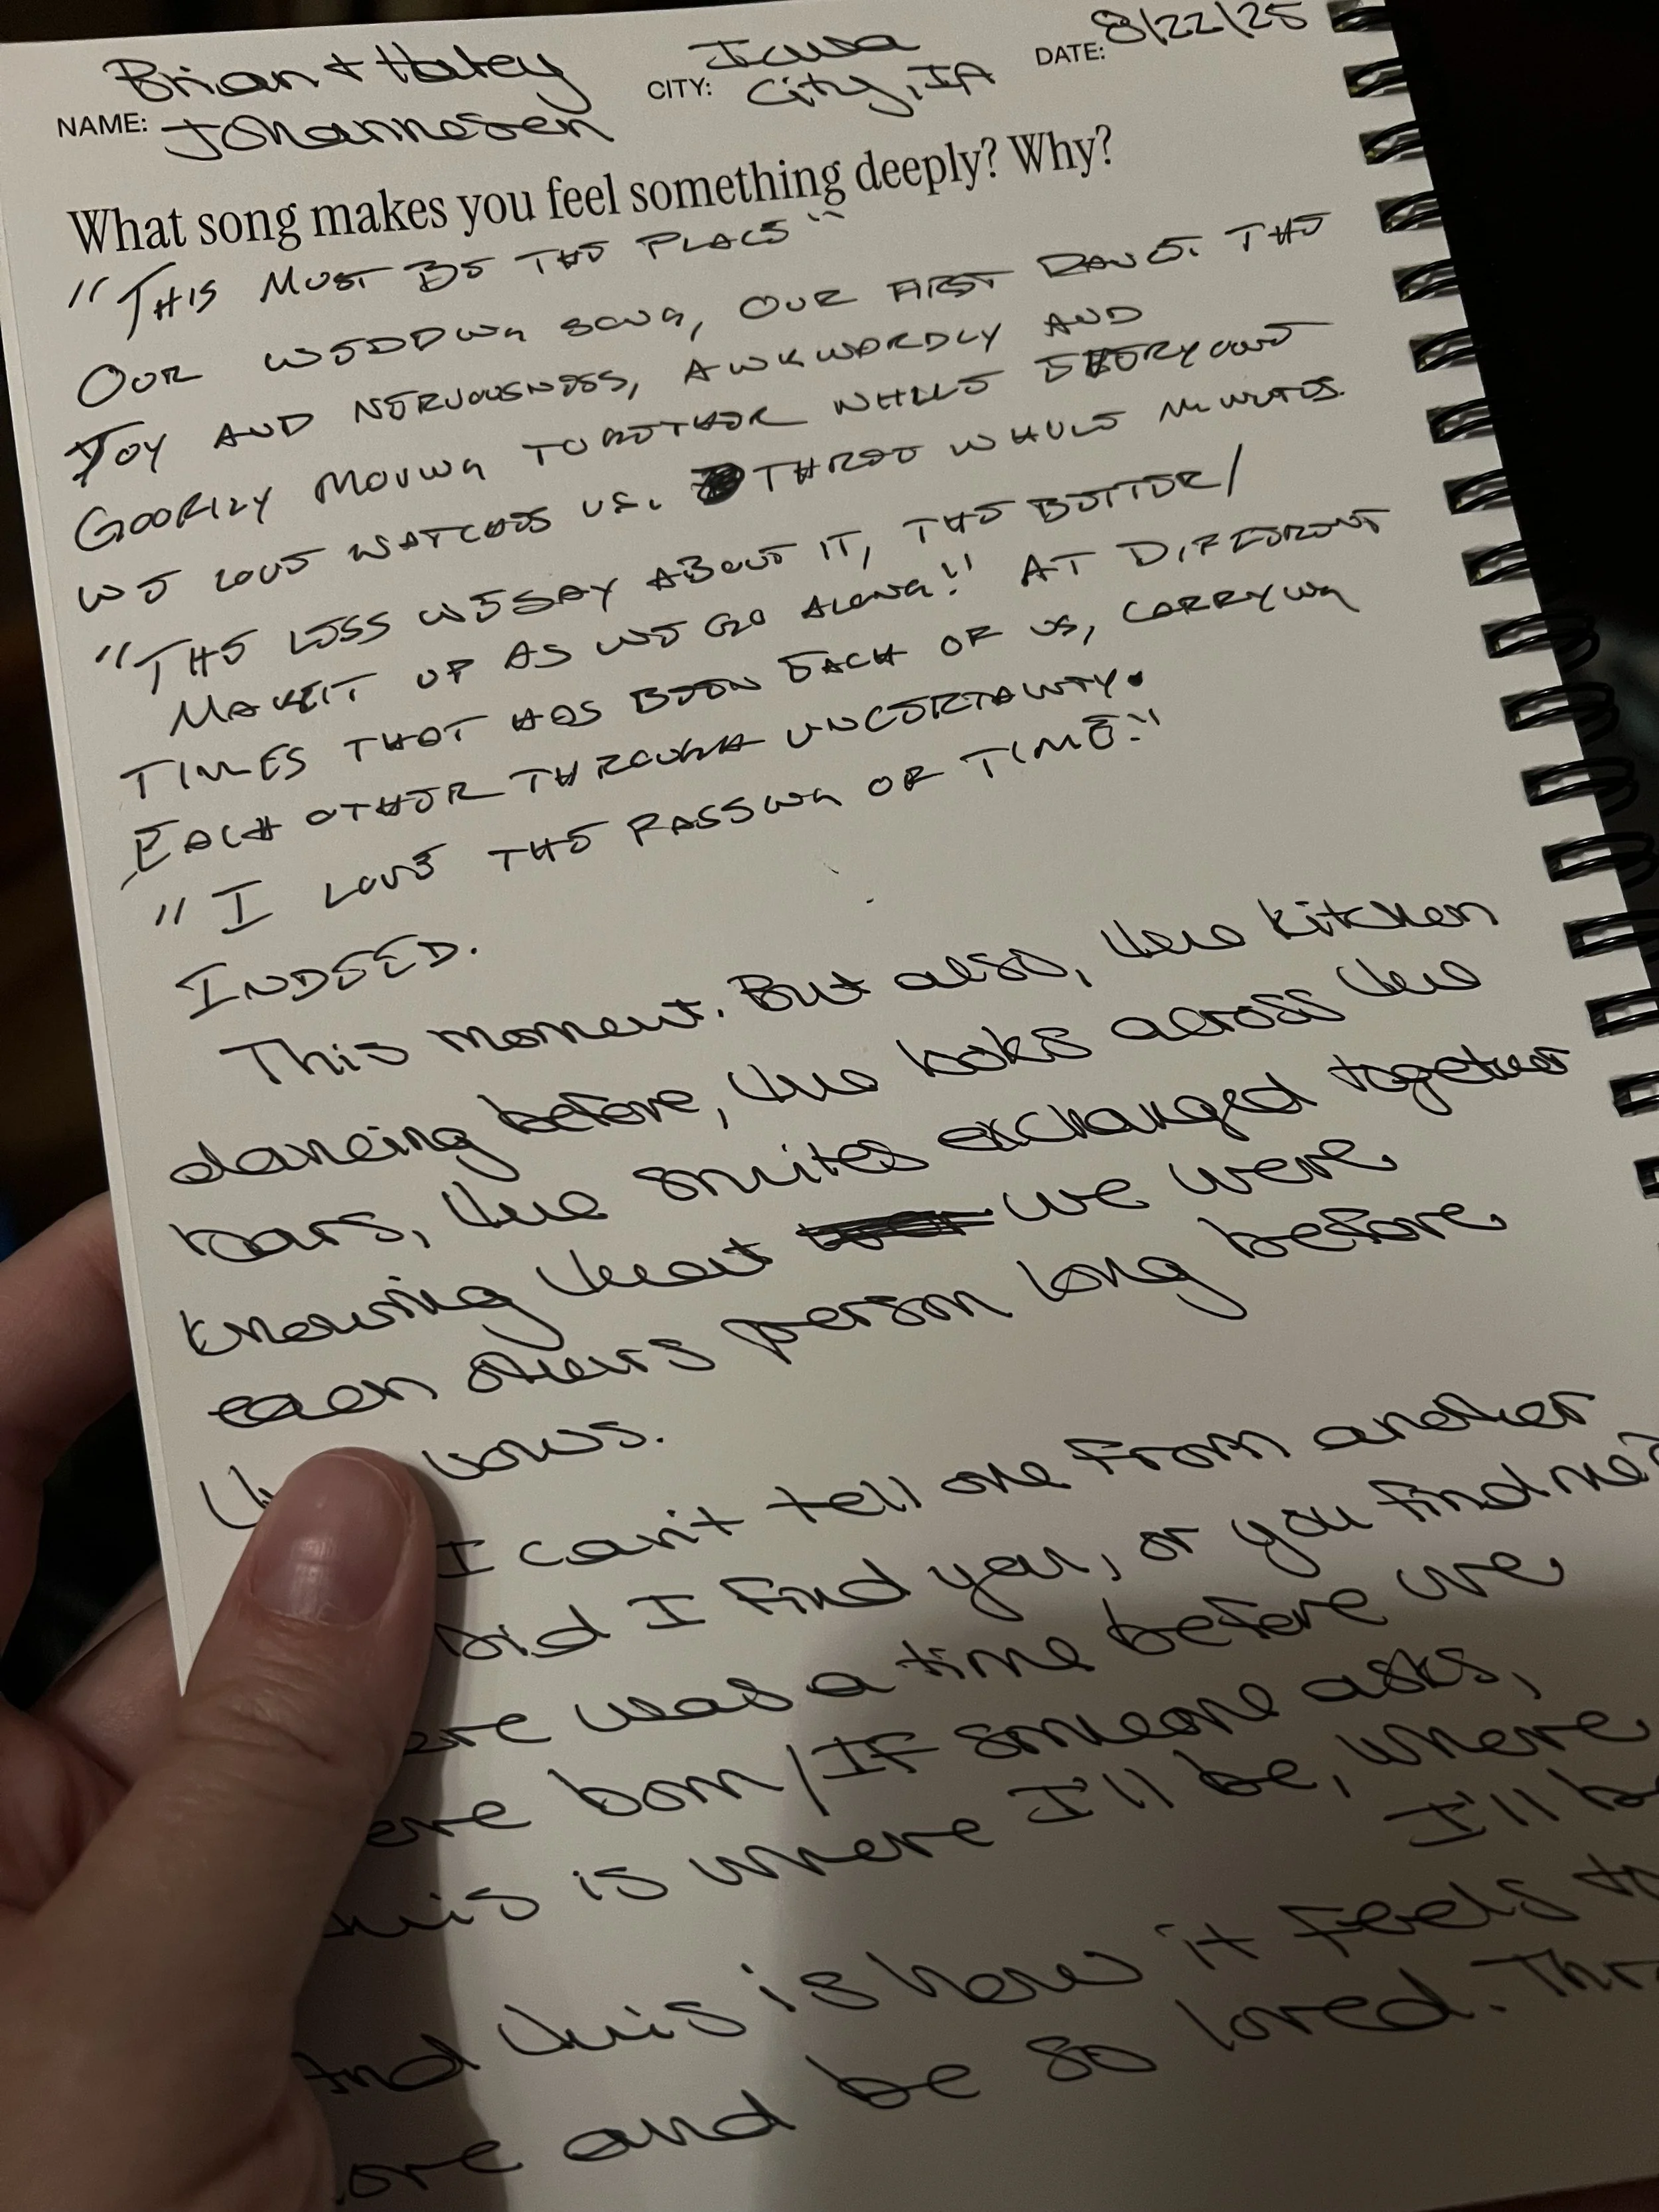 Brian + Haley
NAME: Johannesen
CITY: Iowa
City, IA
DATE: 8/22/25
What song makes you feel something deeply? Why?
"THIS MUST BE THE PLACE"
OUR WEDDING SONG, OUR FIRST DANCE. THE
JOY AND NERVOUSNESS, AWKWARDLY AND
GOOFILY MOVING TOGETHER WHILE EVERYONE
WE LOVE WATCHES US. THREE WHOLE MINUTES.
"THE LESS WE SAY ABOUT IT, THE BETTER/
MAKE IT UP AS WE GO ALONG!" AT DIFFERENT
TIMES THAT HAS BEEN EACH OF US, CARRYING
EACH OTHER THROUGH UNCERTAINTY.
"I LOVE THE PASSING OF TIME."
INDEED.
This moment. But also, the kitchen
dancing before, the looks across the
bars, the smiles exchanged together
knowing that we were
each others person long before
vows.
I can't tell one from another
Did I find you, or you find me?
was a time before we
born/If someone asks,
is where I'll be, where
I'll
And this is how it feels to
and be so loved.